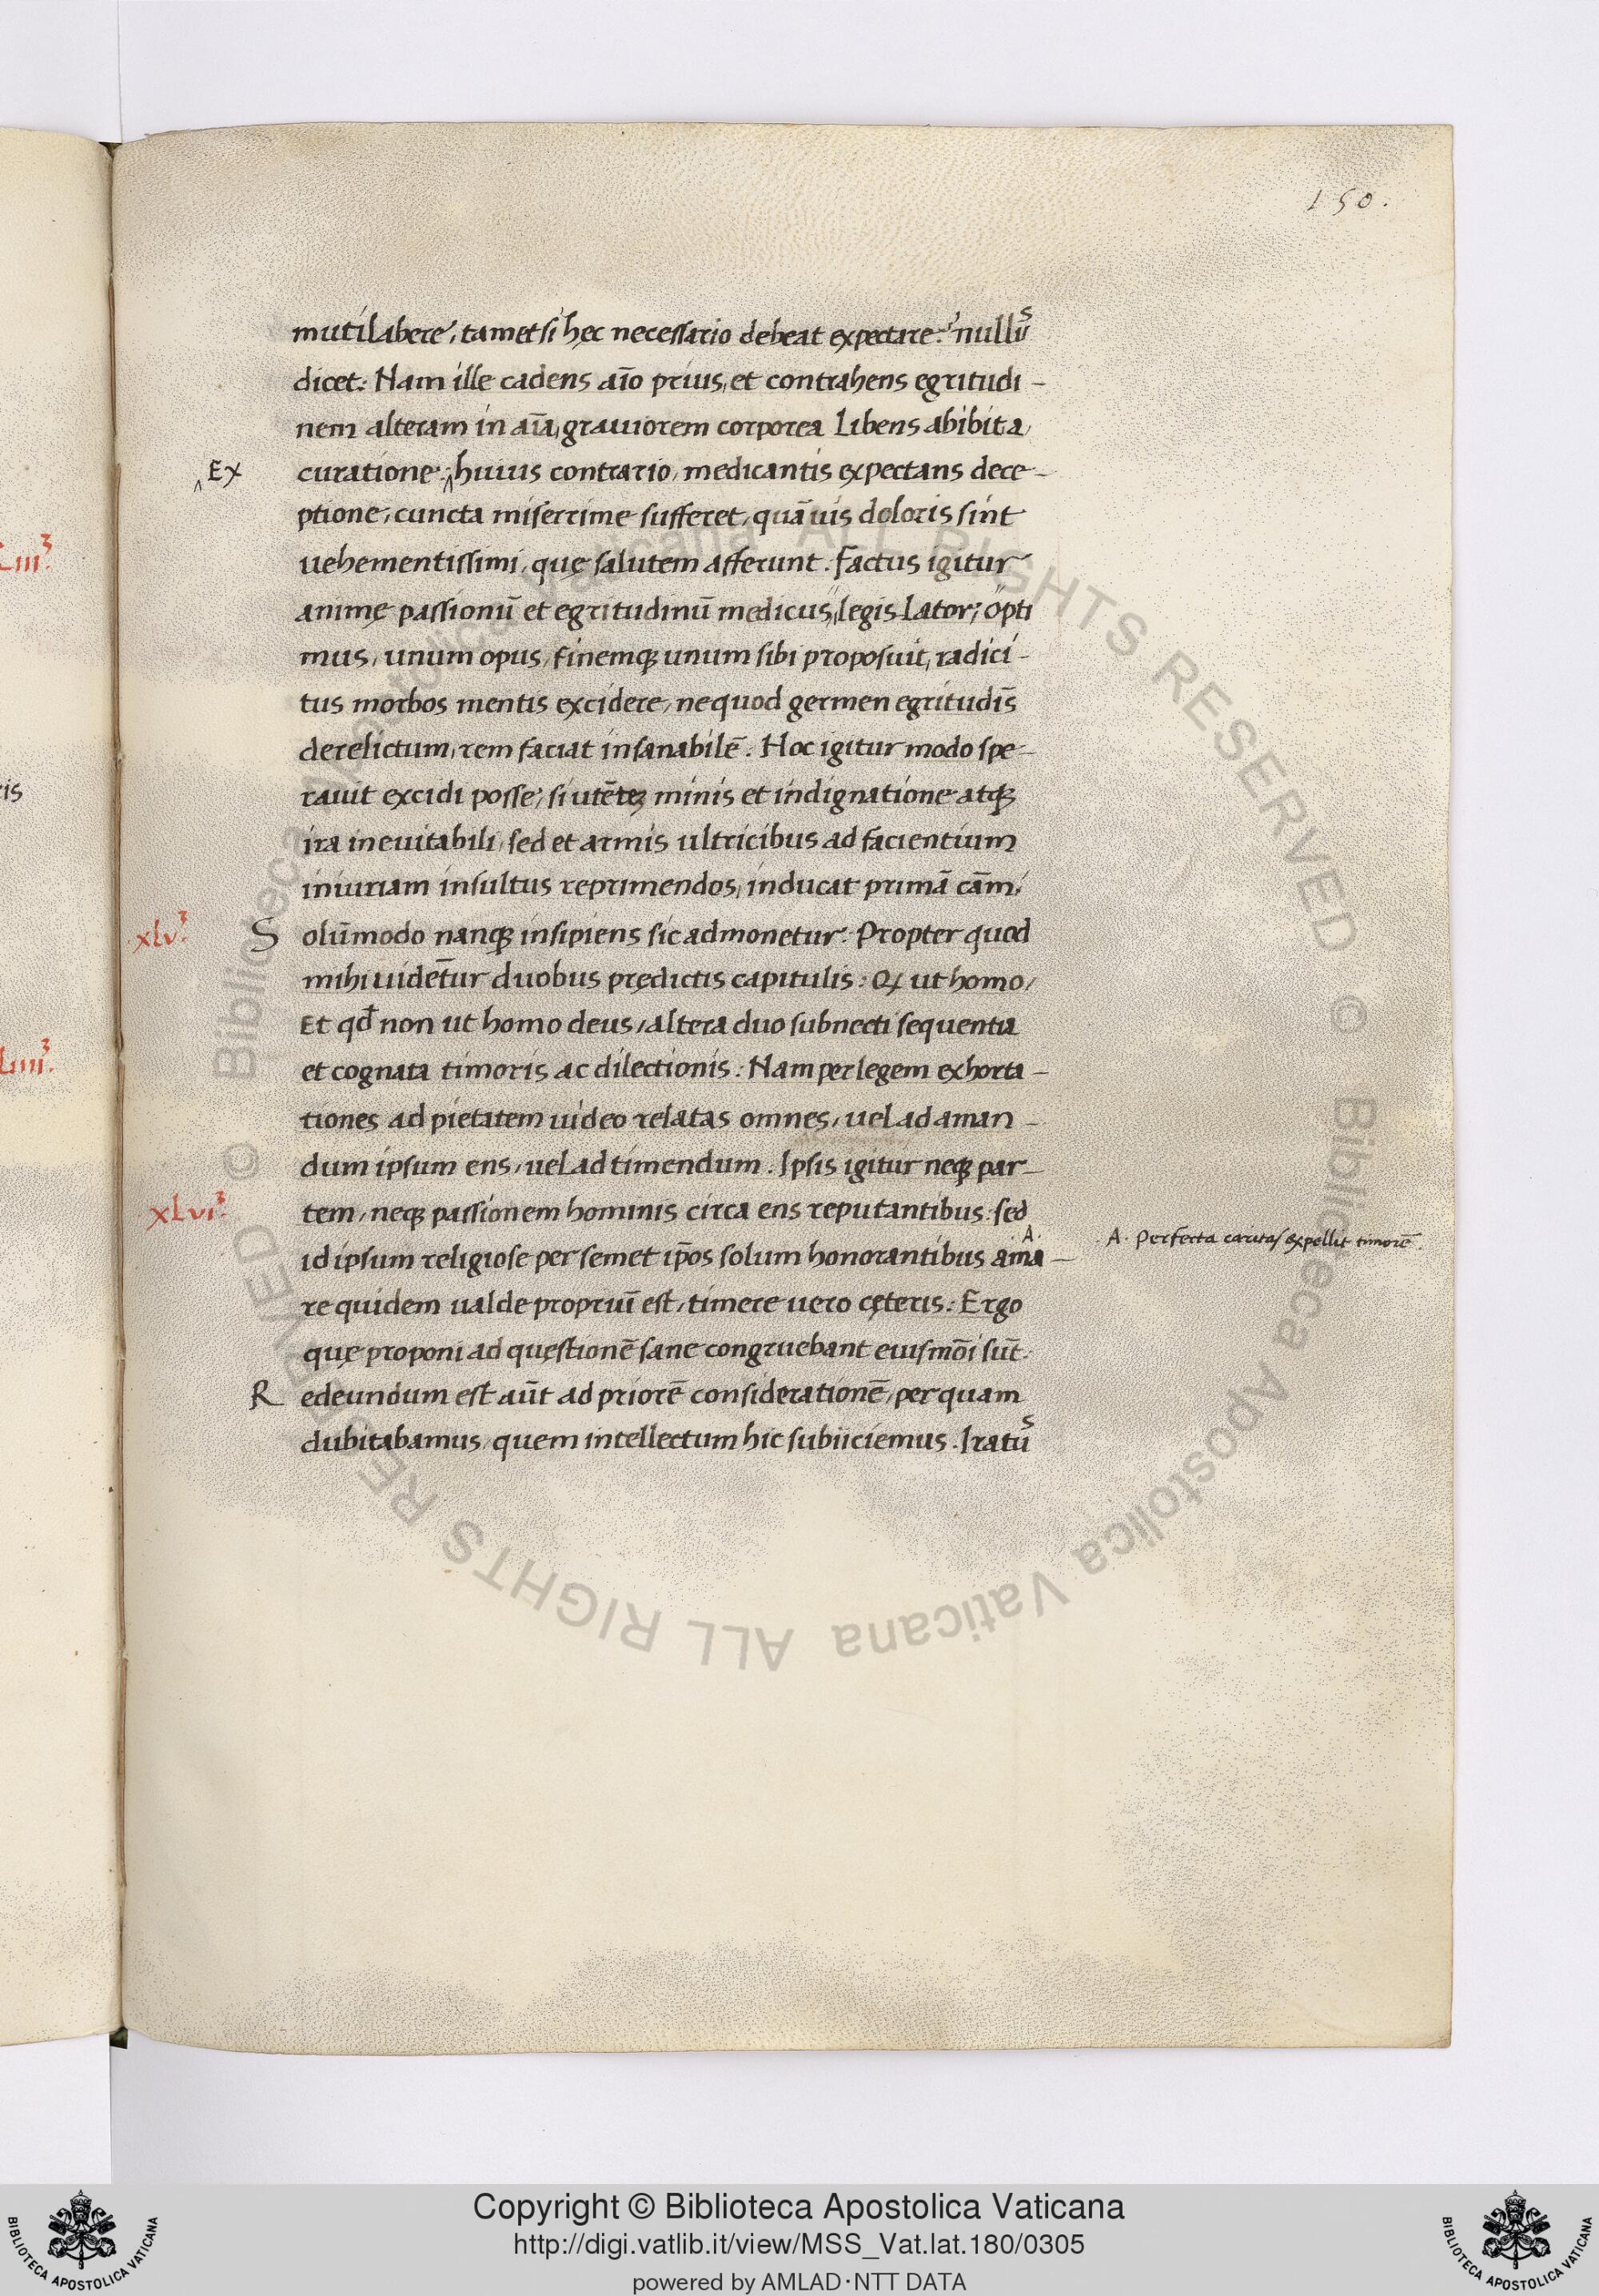 150.
mutilabere, tametsi hęc necessario debeat expectare? nullūs
dicet: Nam ille cadens aīo prius, et contrahens egritudi-
nem alteram in aīa, grauiorem corporea libens abibit a
Ex
curatione: huius contrario, medicantis expectans dece-
ptione, cuncta miserrime sufferet, quāuis doloris sint
uehementissimi, quę salutem afferunt. Factus igitur
animę passionū et egritudinū medicus, legis lator, opti
mus, unum opus, finemq; unum sibi proposuit, radici-
tus morbos mentis excidere, ne quod germen egritudīs
derelictum, rem faciat insanabilē. Hoc igitur modo spe-
rauit excidi posse, si minis et indignatione atq;
ira ineuitabili, sed et armis ultricibus ad facientium
iniuriam insultus reprimendos, inducat primā cām,
xlvͫ.
S olūmodo nanq; insipiens sic admonetur: Propter quod
mihi uidētur duobus prędictis capitulis: Q ut homo,
Et qđ non ut homo deus, altera duo subnecti sequentia
et cognata timoris ac dilectionis: Nam per legem exhorta-
tiones ad pietatem uideo relatas omnes, uel ad aman-
dum ipsum ens, uel ad timendum. Ipsis igitur neq; par-
xlvi.
tem, neq; passionem hominis circa ens reputantibus: sed
id ipsum religiose per semet ip̄os solum honorantibus ama-
.A.
.A. Perfecta caritas expellit timorē.
re quidem ualde propriuī est, timere uero cęteris: Ergo
quę proponi ad quęstionē sane congruebant eiusmōi sūt:
R edeundum est aūt ad priorē considerationē, per quam
dubitabamus, quem intellectum hic subiiciemus. Iratūs
is
Biblioteca Apostolica Vaticana ALL RIGHTS RESERVED © Biblioteca Apostolica Vaticana ALL RIGHTS RESERVED ©
Copyright © Biblioteca Apostolica Vaticana
http://digi.vatlib.it/view/MSS_Vat.lat.180/0305
powered by AMLAD·NTT DATA
BIBLIOTECA APOSTOLICA VATICANA
BIBLIOTECA APOSTOLICA VATICANA